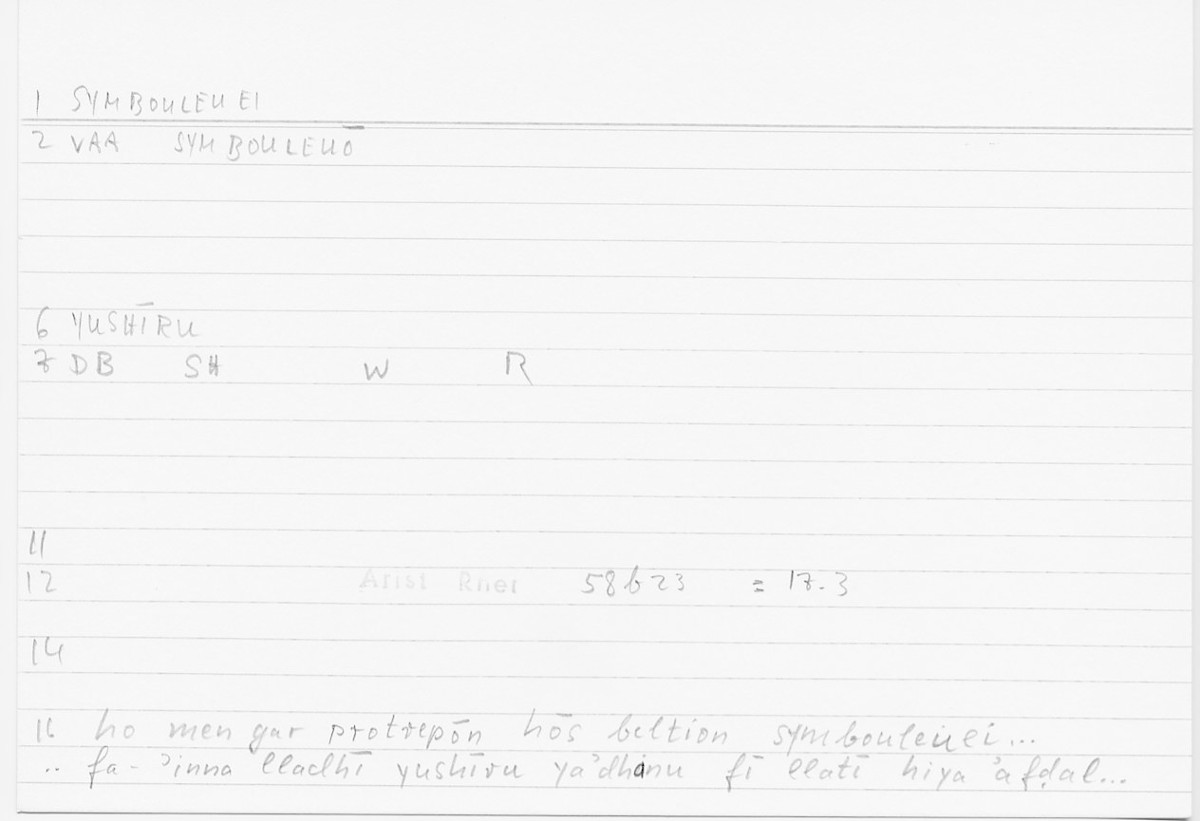 1 SYMBOULEUEI
2 VAA SYMBOULEUŌ
6 YUSHĪRU
7 DB SH W R
11
12 Arist Rhet 58b23 = 17.3
14
16 ho men gar protrepōn hōs beltion symbouleuei...
.. fa-ʾinna lladhī yushīru yaʾdhanu fī llatī hiya ʾafḍal...